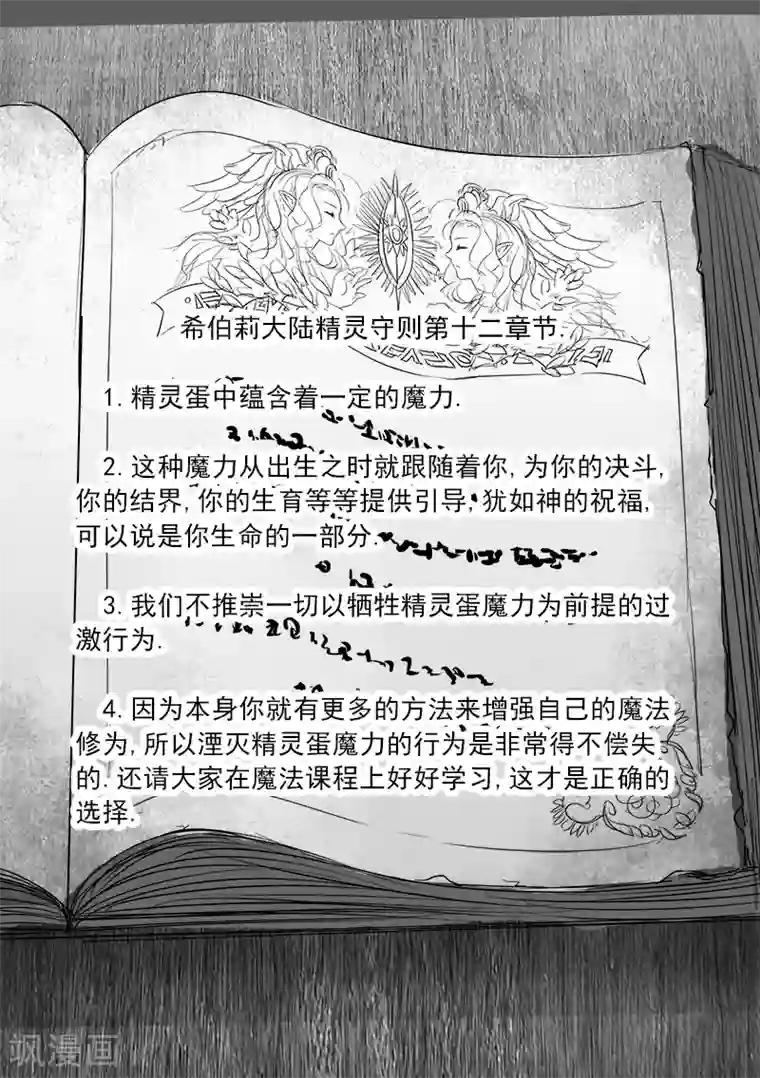 希伯莉大陆精灵守则第十二章节.
1. 精灵蛋中蕴含着一定的魔力.
2. 这种魔力从出生之时就跟随着你, 为你的决斗,
你的结界, 你的生育等等提供引导, 犹如神的祝福,
可以说是你生命的一部分.
3. 我们不推崇一切以牺牲精灵蛋魔力为前提的过
激行为.
4. 因为本身你就有更多的方法来增强自己的魔法
修为, 所以湮灭精灵蛋魔力的行为是非常得不偿失
的. 还请大家在魔法课程上好好学习, 这才是正确的
选择.
飒漫画